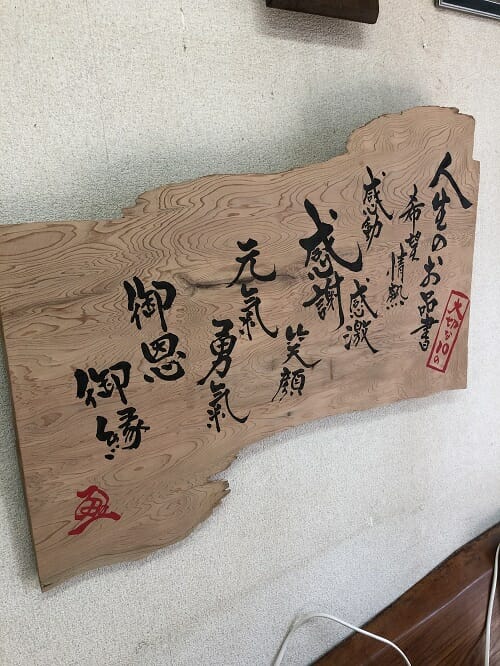 人生のお品書
大切な10の
希望 情熱
感動 感激
感謝 笑顔
元氣 勇氣
御恩
御縁